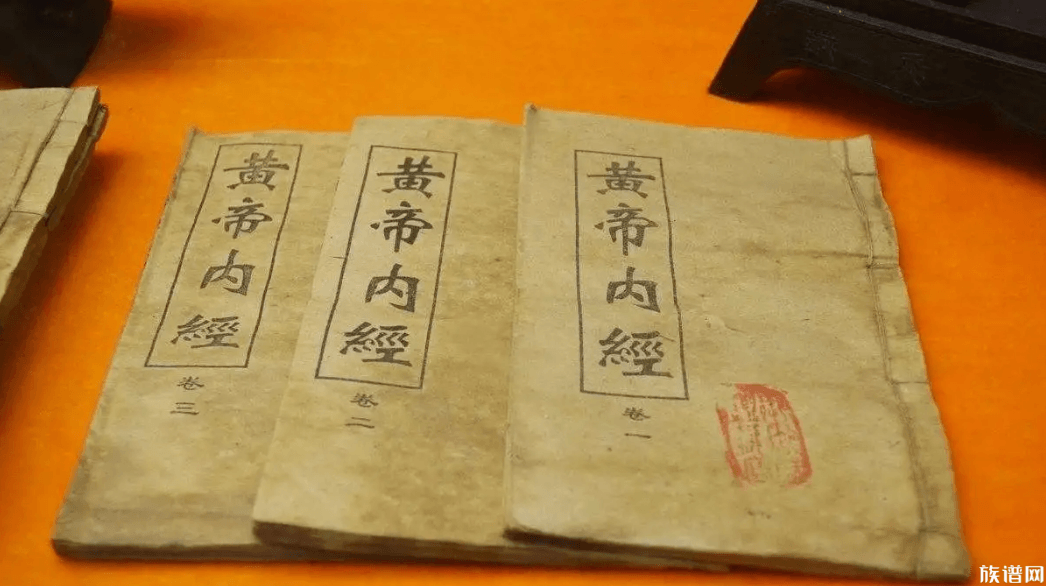 黄帝内經
卷三
黄帝内經
卷二
黄帝内經
卷一
族谱网